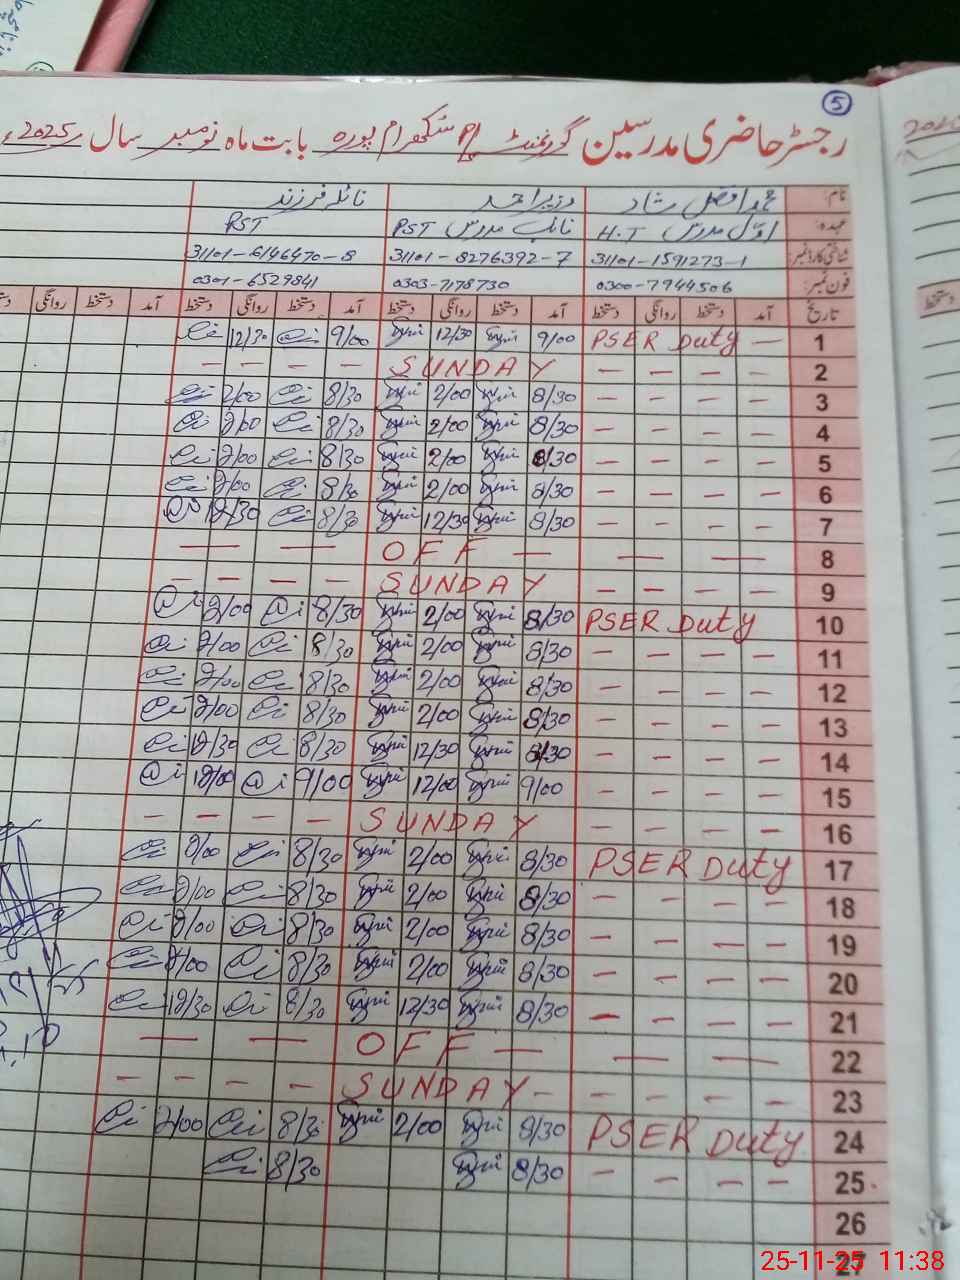 5
رجسٹر حاضری مدرسین گورنمنٹ سکھرام پورہ بابت ماہ نومبر سال 2025ء
نام: محمد افضل شاد وزیر احمد نائلہ فرزند
عہدہ: اوّل مدرس H.T نائب مدرس PST PST
شناختی کارڈ نمبر: 31101-1591273-1 31101-8276392-7 31101-6146470-8
فون نمبر: 0300-7944506 0303-7178730 0301-6529841
تاریخ آمد دستخط روانگی دستخط آمد دستخط روانگی دستخط آمد دستخط روانگی دستخط آمد دستخط روانگی
1 PSER Duty — 9/00 12/30 9/00 12/30
2 — — — — SUNDAY — — — —
3 — — — — 8/30 2/00 8/30 2/00
4 — — — — 8/30 2/00 8/30 2/00
5 — — — — 8/30 2/00 8/30 2/00
6 — — — — 8/30 2/00 8/30 2/00
7 — — — — 8/30 12/30 8/30 12/30
8 — — OFF — — —
9 — — — — SUNDAY — — — —
10 PSER Duty 8/30 2/00 8/30 2/00
11 — — — — 8/30 2/00 8/30 2/00
12 — — — — 8/30 2/00 8/30 2/00
13 — — — — 8/30 2/00 8/30 2/00
14 — — — — 8/30 12/30 8/30 12/30
15 — — — — 9/00 12/00 9/00 12/00
16 — — — — SUNDAY — — — —
17 PSER Duty 8/30 2/00 8/30 2/00
18 — — — — 8/30 2/00 8/30 2/00
19 — — — — 8/30 2/00 8/30 2/00
20 — — — — 8/30 2/00 8/30 2/00
21 — — — — 8/30 12/30 8/30 12/30
22 — — OFF — — —
23 — — — — SUNDAY — — — — —
24 PSER Duty 8/30 2/00 8/30 2/00
25 — — — — 8/30 8/30
26
27
25-11-25 11:38